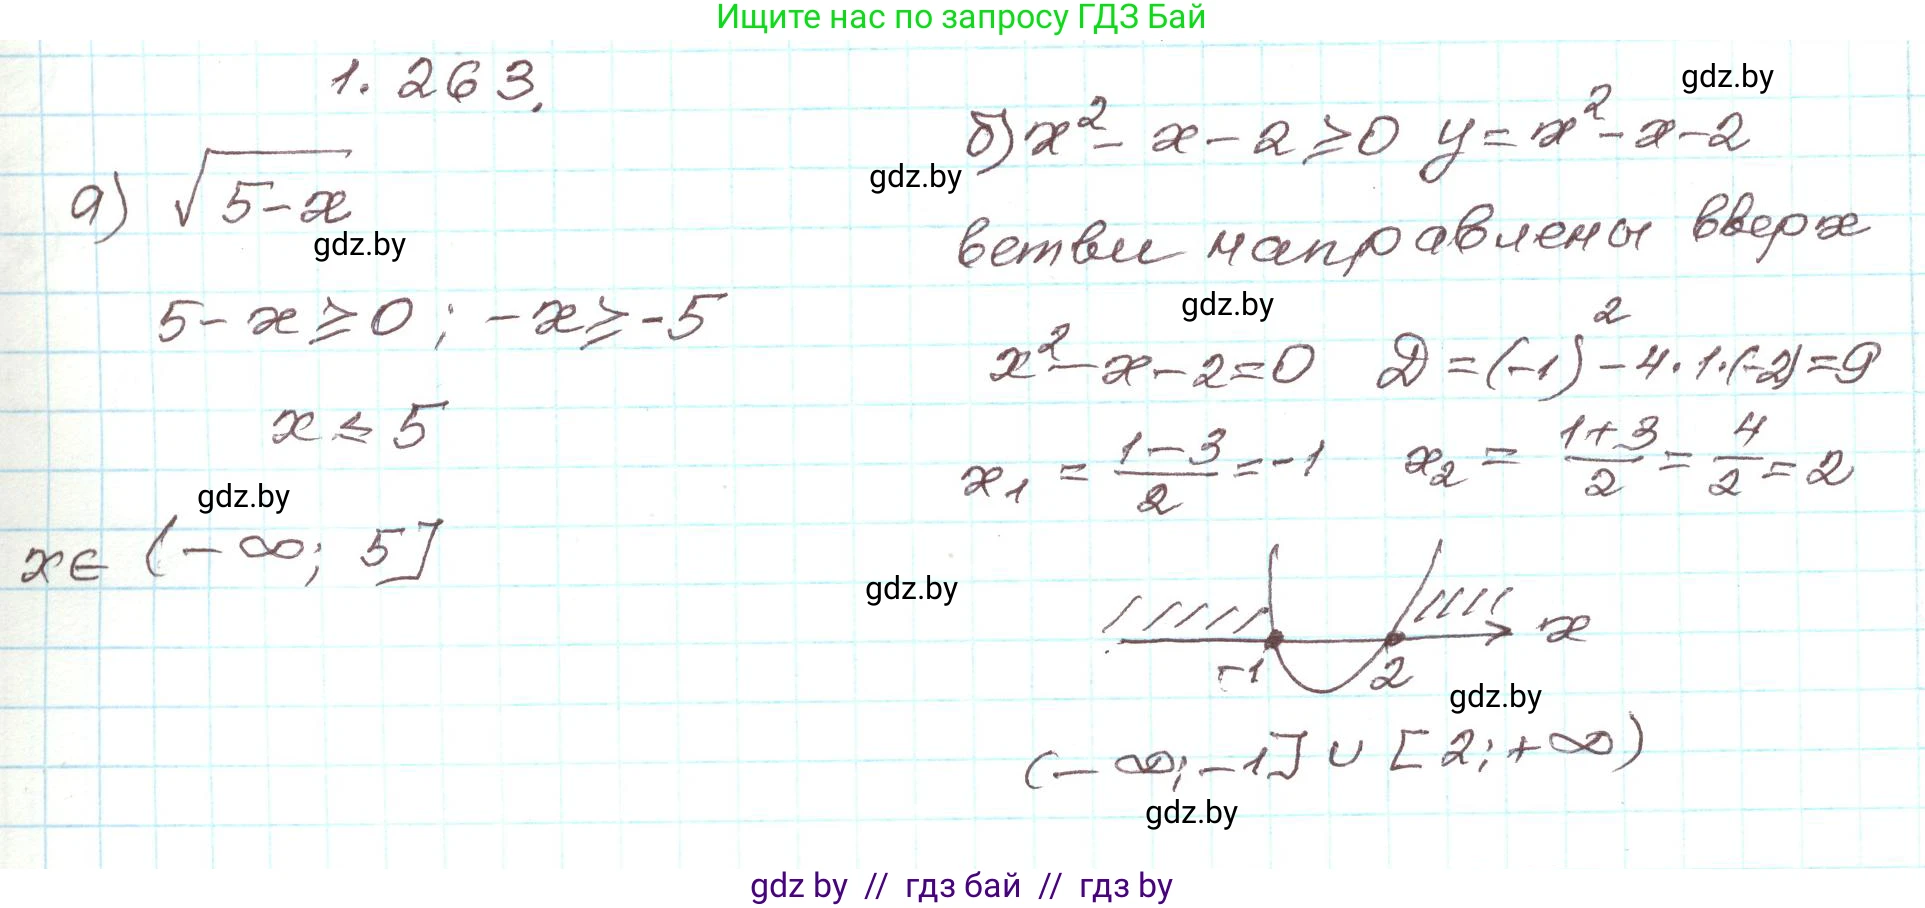 Ищите нас по запросу ГДЗ Бай
1.263.
gdz.by
а) √(5-x)
gdz.by
5-x≥0; -x≥-5
x≤5
gdz.by
x∈ (-∞; 5]
gdz.by
б) x²-x-2≥0 y=x²-x-2
ветви направлены вверх
gdz.by
x²-x-2=0 Д=(-1)²-4·1·(-2)=9
x₁ = (1-3)/2 = -1 x₂ = (1+3)/2 = 4/2 = 2
gdz.by
x
-1 2
gdz.by
(-∞; -1] ∪ [2; +∞)
gdz.by
gdz by // гдз бай // гдз by